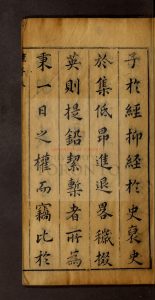 子於經抑經於史裒史
於集低昻進退畧穢掇
英則提鉛絜槧者所為
秉一日之權而竊比於